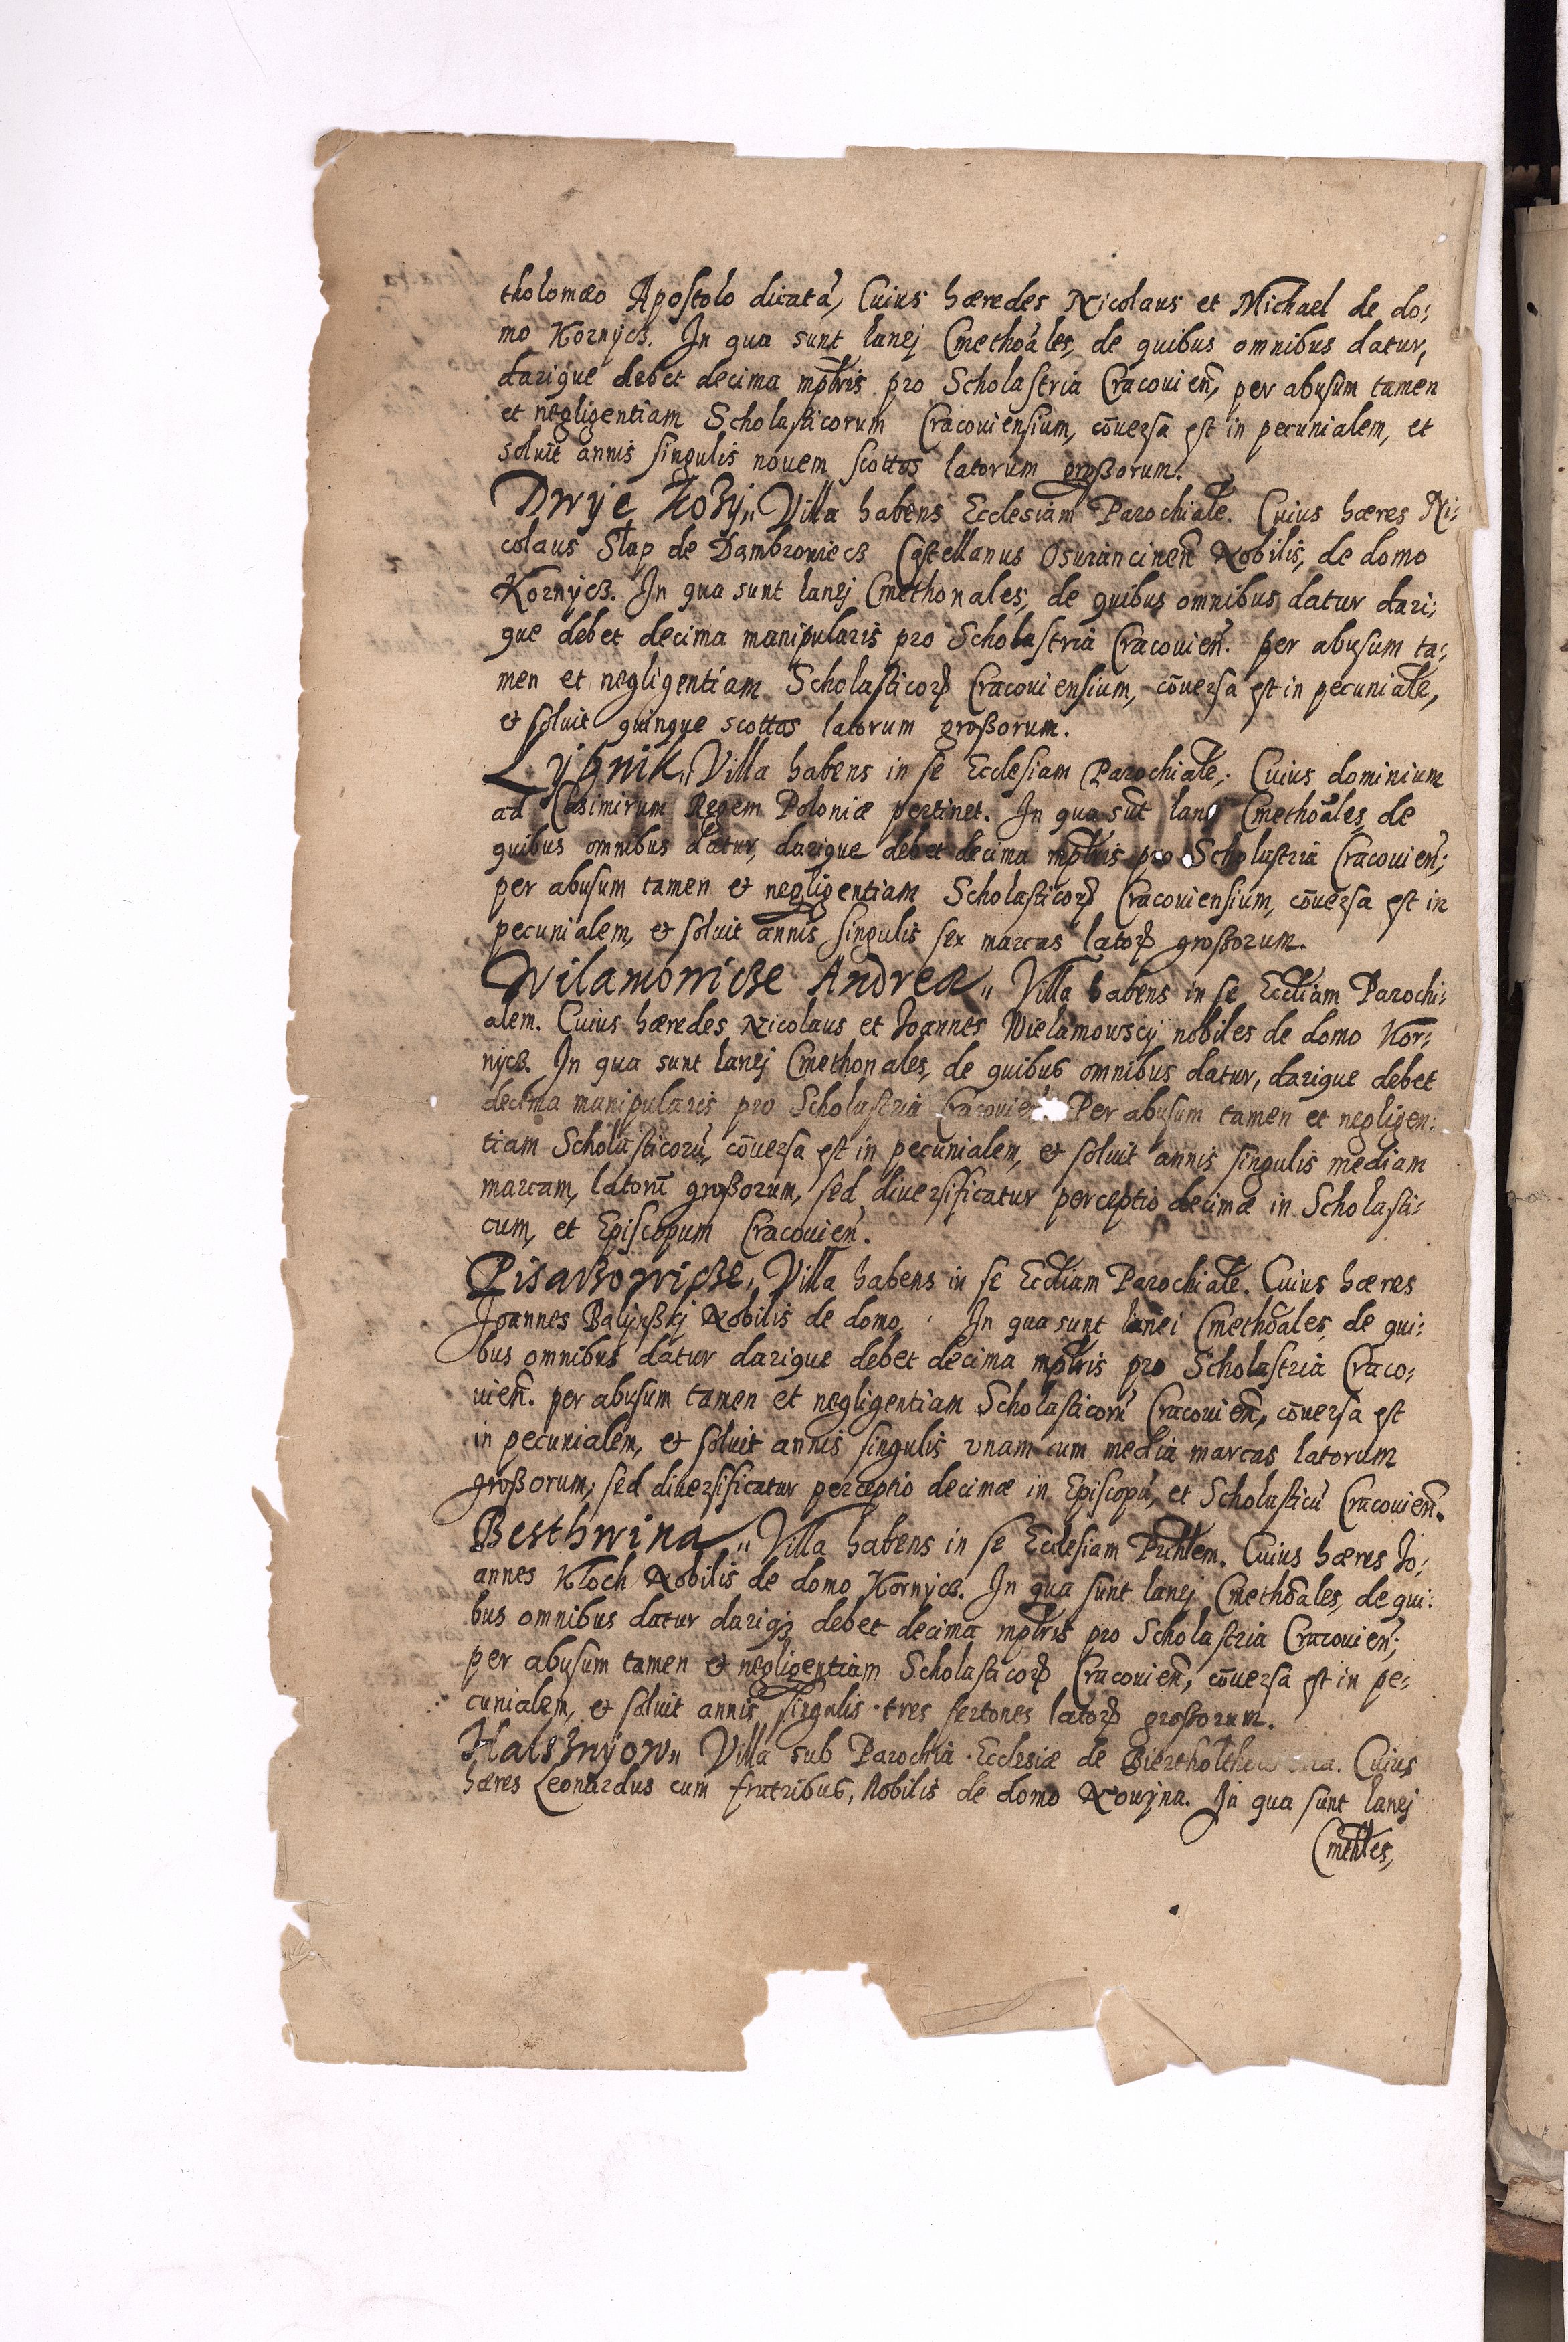 tholomæo Apostolo dicatā, Cuius hæredes Nicolaus et Michael de do:
mo Kornycz. In qua sunt lanej Cmethoāles, de quibus omnibus datur,
darique debet decima mplris pro Scholastria Cracouień, per abusum tamen
et negligentiam Scholasticorum Cracouiensium, cōuersa est in pecunialem, et
soluit annis singulis nouem scottos latorum großorum.
Dwye Kozy„ Villa habens Ecclesiam Parochiale. Cuius hæres Ni:
colaus Słap de Dambrowiecz Castellanus Osuiancineñ Nobilis, de domo
Kornycz. In qua sunt lanej Cmethonales, de quibus omnibus datur dari:
que debet decima manipularis pro Scholastria Cracouień. per abusum ta:
men et negligentiam Scholasticorꝝ Cracouiensium, cōuersa est in pecuniale,
et soluit quinque scottos latorum großorum.
Lypnik„ Villa habens in se Ecclesiam Parochiale. Cuius dominium
ad Casimirum Regem Poloniæ pertinet. In qua sūt lanej Cmethoāles, de
quibus omnibus datur, darique debet decima mplris pro Scholastria Cracouień;
per abusum tamen et negligentiam Scholasticorꝝ Cracouiensium, cōuersa est in
pecunialem, et soluit annis singulis sex marcas latorꝝ großorum.
Wilamowicze Andreæ„ Villa habens in se Eccliam Parochi:
alem. Cuius hæredes Nicolaus et Joannes Wielamowscy nobiles de domo Kor:
nycz. In qua sunt lanej Cmethonales, de quibus omnibus datur, darique debet
decima manipularis pro Scholastria Cracouień Per abusum tamen et negligen:
tiam Scholasticorū, cōuersa est in pecunialem, et soluit annis singulis mediam
marcam, latorū großorum, sed diuersificatur perceptio decimæ in Scholasti:
cum, et Episcopum Cracouień.
Pisarzowicze„ Villa habens in se Eccliam Parochiale. Cuius hæres
Joannes Balynßkj Nobilis de domo. In qua sunt lanei Cmethoāles, de qui:
bus omnibus datur darique debet decima mplris pro Scholastria Craco:
uień. per abusum tamen et negligentiam Scholasticorū Cracouień, cōuersa est
in pecunialem, et soluit annis singulis vnam cum media marcas latorum
großorum; sed diuersificatur perceptio decimæ in Episcopū, et Scholasticū Cracouień.
Besthwina„ Villa habens in se Ecclesiam Puhlem. Cuius hæres Jo:
annes Kloch Nobilis de domo Kornycz. In qua sunt lanej Cmethoāles, de qui:
bus omnibus datur dariqꝫ debet decima mplris pro Scholastria Cracouień;
per abusum tamen et negligentiam Scholasticorꝝ Cracouień, cōuersa est in pe:
cunialem, et soluit annis singulis tres fertones latorꝝ großorum.
Halsznyow„ Villa sub Parochia Ecclesiæ de Cuius
hæres Leonardus cum fratribus, Nobilis de domo Nowyna. In qua sunt lanej
Cmthles,